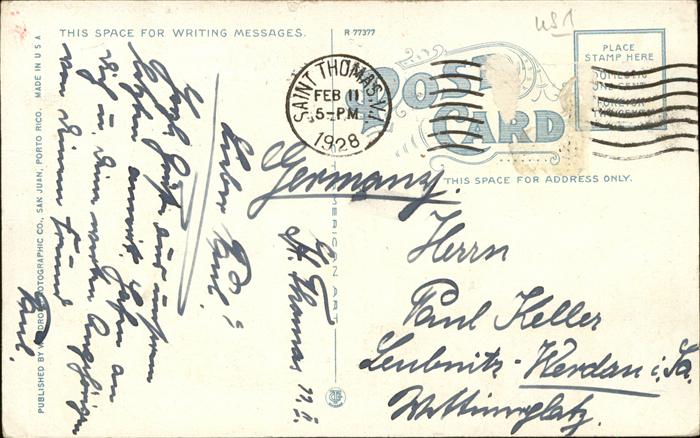 THIS SPACE FOR WRITING MESSAGES.
R 77377
USA
SAINT THOMAS, V.I.
FEB 11
5-PM
1928
POST CARD
PLACE
STAMP HERE
DOMESTIC
ONE CENT
FOREIGN
THIS SPACE FOR ADDRESS ONLY.
MADE IN U S A
SAN JUAN, PORTO RICO.
PUBLISHED BY
PHOTOGRAPHIC CO.,
Germany.
Herrn
Paul Keller
Leubnitz-Werdau i. Sa.
Wettinerplatz.
St. Thomas
Lieber
Paul!
an
Dich u. Deine werten Angehörigen
von Deinem Freund
Paul.